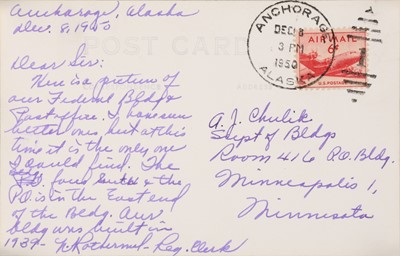 Anchorage, Alaska
Dec. 8, 1950
POST CARD
Dear Sir:
Here is a picture of
our Federal Bldg &
Postoffice. I have seen
better ones, but at this
time it is the only one
I could find. The
Bldg. faces South & the
P.O. is in the East end
of the Bldg. Our
bldg was built in
1939 - Reg. Clerk
ANCHORAGE
DEC 8
3 PM
1950
ALASKA
AIR MAIL
6¢
U.S. POSTAGE
A. J. Chulik
Supt of Bldgs
Room 416 P.O. Bldg.
Minneapolis 1,
Minnesota